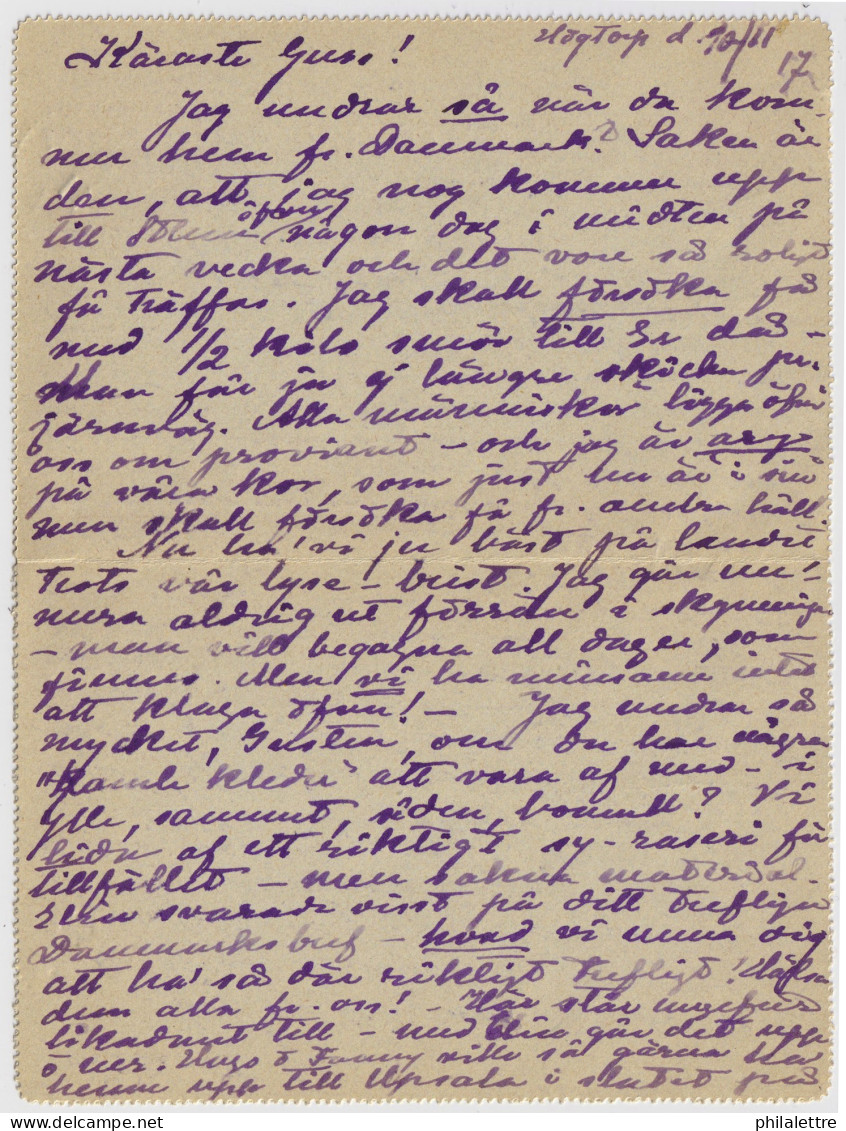 Högtorp d. /11
17
Käraste Guss!
Jag undrar så när du kom-
mer hem fr. Danmark? Saken är
den, att jag nog kommer upp
till Sthlm någon dag i midten på
nästa vecka och det vore så roligt
få träffas. Jag skall försöka få
med 1/2 kilo smör till Er då –
Man får ju ej längre skicka pr.
järnväg. Alla människor ligga öfver
oss om proviant – och jag är arg
på våra kor, som just nu är i sin
men skall försöka få fr. andra håll.
Nu ha' vi ju bäst på landet
trots vår lyse-brist. Jag går nu-
mera aldrig ut förrän i skymningen
– man vill begagna all dager, som
finnes. Men vi ha minsann intet
att klaga öfver! – Jag undrar så
mycket, Gusten, om du har några
"gamle kleder" att vara af med – i
ylle, sammet, siden, bomull? Vi
lida af ett riktigt sy-raseri för
tillfället – men sakna material.
Elin svarade visst på ditt trefliga
Danmarksbref – hvad vi unna dig
att ha' så där rikligt trefligt! Hälsa
dem alla fr. oss! – Här står ungefär
likadant till – med Elin går det upp
o ner. Hugo & Fanny ville så gärna ha
henne upp till Upsala i slutet på
delcampe.net
philalettre